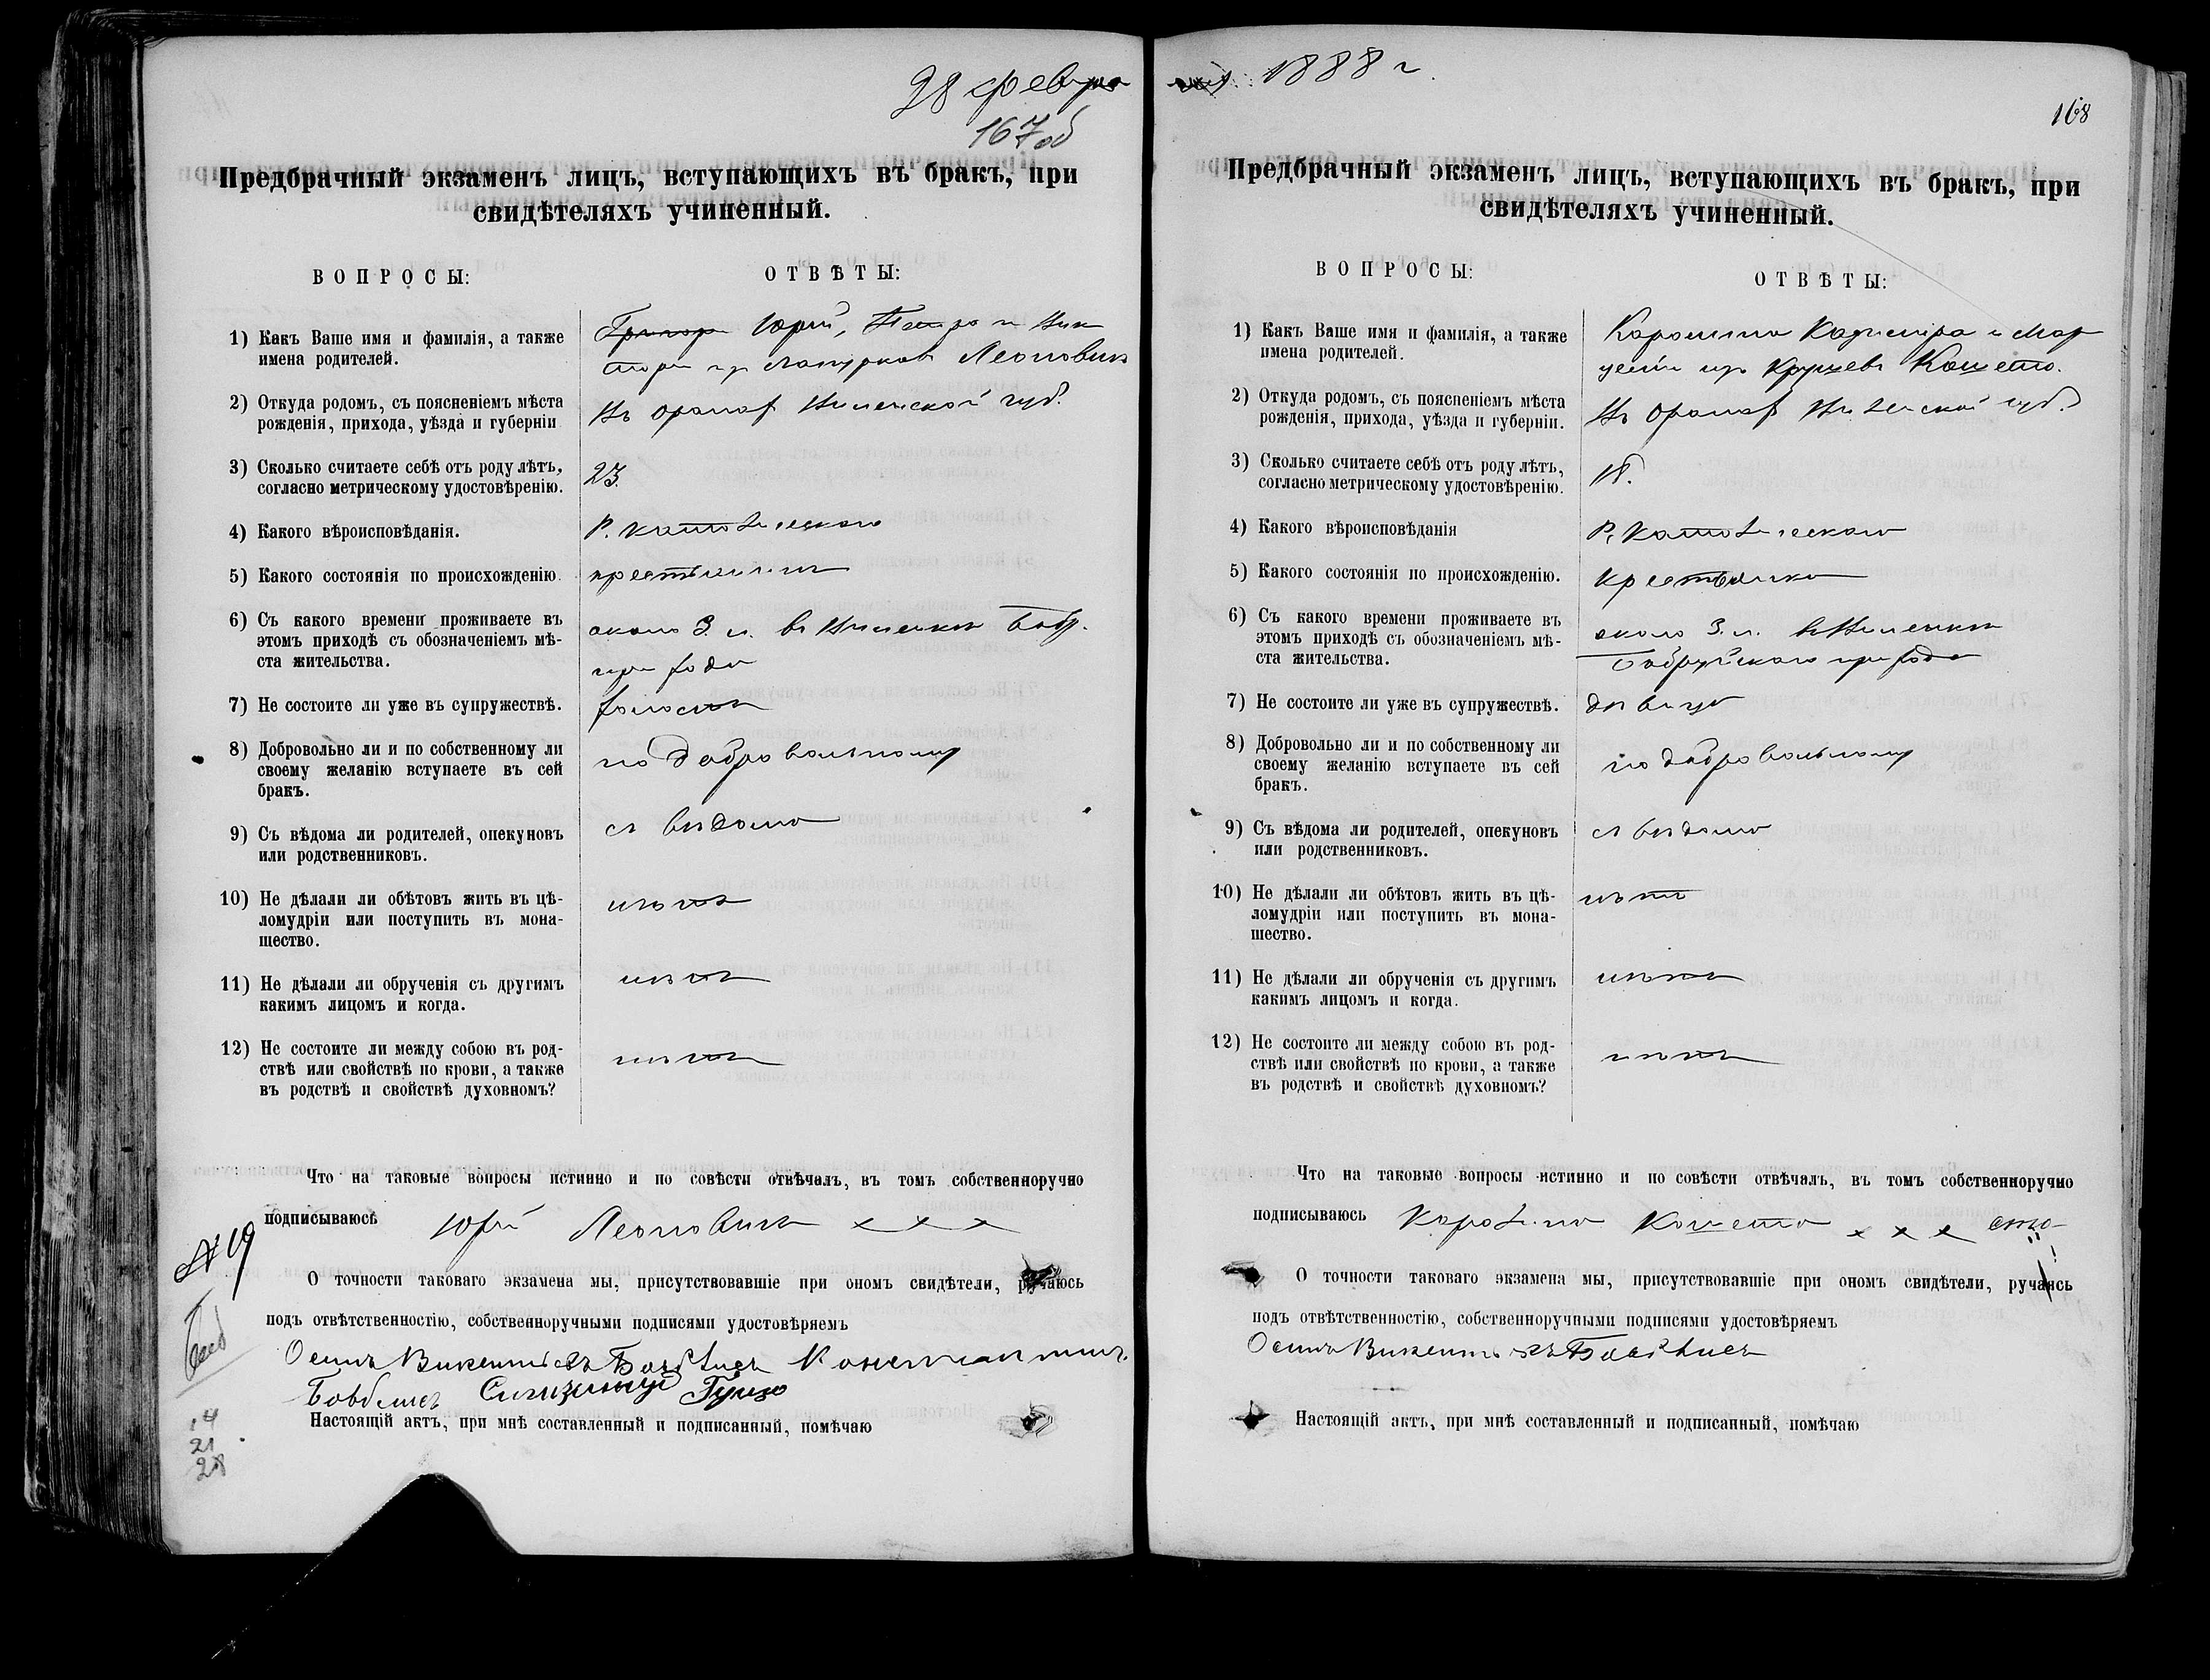 28 февра
167 об
Предбрачный экзаменъ лицъ, вступающихъ въ бракъ, при
свидѣтеляхъ учиненный.
ВОПРОСЫ:
ОТВѢТЫ:
1) Какъ Ваше имя и фамилія, а также
имена родителей.
Юрій, Петра и Вик
Леоновичъ
2) Откуда родомъ, съ поясненіемъ мѣста
рожденія, прихода, уѣзда и губерніи
губ.
3) Сколько считаете себѣ отъ роду лѣтъ,
согласно метрическому удостовѣренію.
23.
4) Какого вѣроисповѣданія.
Р. католическаго
5) Какого состоянія по происхожденію.
крестьянинъ
6) Съ какого времени проживаете въ
этомъ приходѣ съ обозначеніемъ мѣ-
ста жительства.
около 3. л. въ
прихода
7) Не состоите ли уже въ супружествѣ.
холостъ
8) Добровольно ли и по собственному ли
своему желанію вступаете въ сей
бракъ.
по добровольному
9) Съ вѣдома ли родителей, опекуновъ
или родственниковъ.
съ вѣдома
10) Не дѣлали ли обѣтовъ жить въ цѣ-
ломудріи или поступить въ мона-
шество.
нѣтъ
11) Не дѣлали ли обрученія съ другимъ
какимъ лицомъ и когда.
нѣтъ
12) Не состоите ли между собою въ род-
ствѣ или свойствѣ по крови, а также
въ родствѣ и свойствѣ духовномъ?
нѣтъ
Что на таковые вопросы истинно и по совѣсти отвѣчалъ, въ томъ собственноручно
подписываюсь Юрій Леоновичъ × × ×
№ 19
О точности таковаго экзамена мы, присутствовавшіе при ономъ свидѣтели, ручаюсь
подъ отвѣтственностію, собственноручными подписями удостовѣряемъ
Осипъ Викентіевъ
Сигизмундъ
Настоящій актъ, при мнѣ составленный и подписанный, помѣчаю
14
21
28
ля 1888 г.
168
Предбрачный экзаменъ лицъ, вступающихъ въ бракъ, при
свидѣтеляхъ учиненный.
ВОПРОСЫ:
ОТВѢТЫ:
1) Какъ Ваше имя и фамилія, а также
имена родителей.
Каролина Казиміра и Мар
Кошето.
2) Откуда родомъ, съ поясненіемъ мѣста
рожденія, прихода, уѣзда и губерніи.
губ.
3) Сколько считаете себѣ отъ роду лѣтъ,
согласно метрическому удостовѣренію.
18.
4) Какого вѣроисповѣданія
Р. католическаго
5) Какого состоянія по происхожденію.
крестьянка
6) Съ какого времени проживаете въ
этомъ приходѣ съ обозначеніемъ мѣ-
ста жительства.
около 3. л.
Бобруйскаго прихода
7) Не состоите ли уже въ супружествѣ.
дѣвица
8) Добровольно ли и по собственному ли
своему желанію вступаете въ сей
бракъ.
по добровольному
9) Съ вѣдома ли родителей, опекуновъ
или родственниковъ.
съ вѣдома
10) Не дѣлали ли обѣтовъ жить въ цѣ-
ломудріи или поступить въ мона-
шество.
нѣтъ
11) Не дѣлали ли обрученія съ другимъ
какимъ лицомъ и когда.
нѣтъ
12) Не состоите ли между собою въ род-
ствѣ или свойствѣ по крови, а также
въ родствѣ и свойствѣ духовномъ?
нѣтъ
Что на таковые вопросы истинно и по совѣсти отвѣчалъ, въ томъ собственноручно
подписываюсь Каролина Кошето × × ×
О точности таковаго экзамена мы, присутствовавшіе при ономъ свидѣтели, ручаясь
подъ отвѣтственностію, собственноручными подписями удостовѣряемъ
Осипъ Викентіевъ
Настоящій актъ, при мнѣ составленный и подписанный, помѣчаю